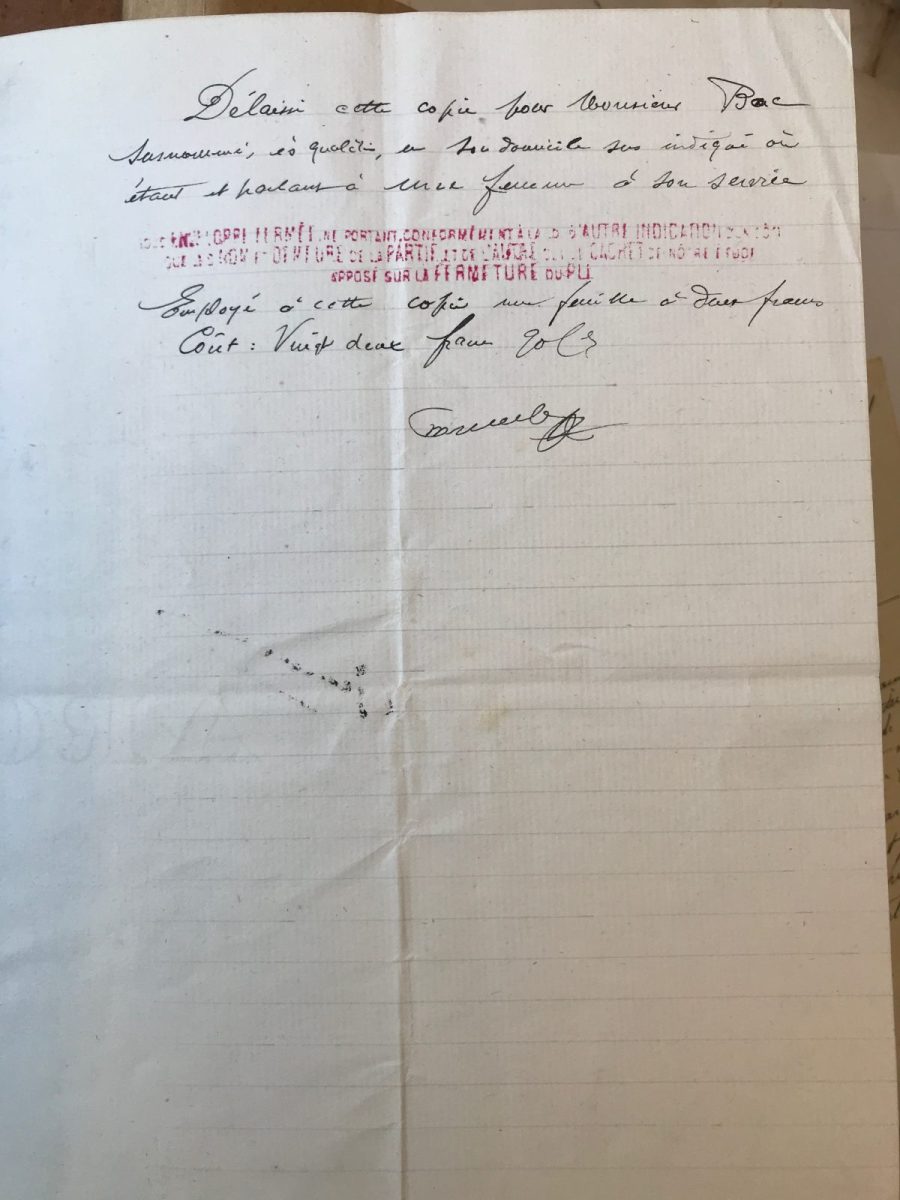 Délaissé cette copie pour Monsieur Bac
susnommé, ès qualités, en son domicile sus indiqué où
étant et parlant à une femme à son service
SOUS ENVELOPPE FERMÉE NE PORTANT, CONFORMÉMENT À LA LOI D'AUTRE INDICATION D'UN CÔTÉ
QUE LES NOM ET DEMEURE DE LA PARTIE, ET DE L'AUTRE QUE LE CACHET DE NOTRE ÉTUDE
APPOSÉ SUR LA FERMETURE DU PLI.
Employé à cette copie une feuille à deux francs
Coût : Vingt deux francs 90